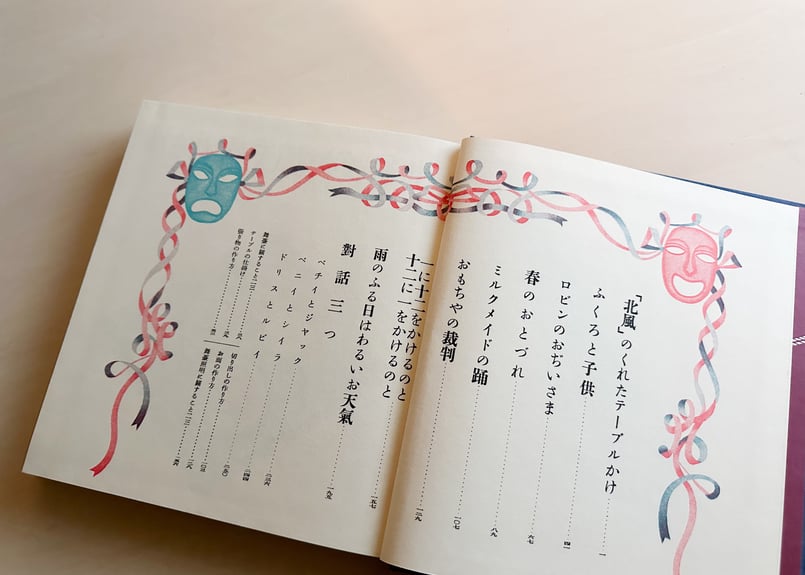 「北風」のくれたテーブルかけ 一
ふくろと子供
ロビンのおぢいさま 四一
春のおとづれ 六七
ミルクメイドの踊 八九
おもちやの裁判 一〇七
一に十二をかけるのと
十二に一をかけるのと 一二九
雨のふる日はわるいお天氣 一五七
對話三つ 一九五
ベチイとジヤック
ベニイとシイラ
ドリスとルビイ
舞臺に關すること二三
テーブルの仕掛け
張り物の作り方
切り出しの作り方
お面の作り方
舞臺照明に關すること二三